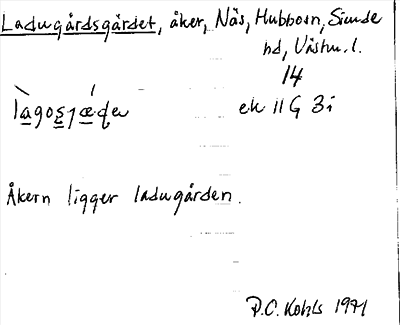 Ladugårdsgärdet, åker, Näs, Hubbo sn, Siende
hd, Västm. l.
14
ek 11 G 3i
Åkern ligger ladugården.
P.C. Kohls 1971